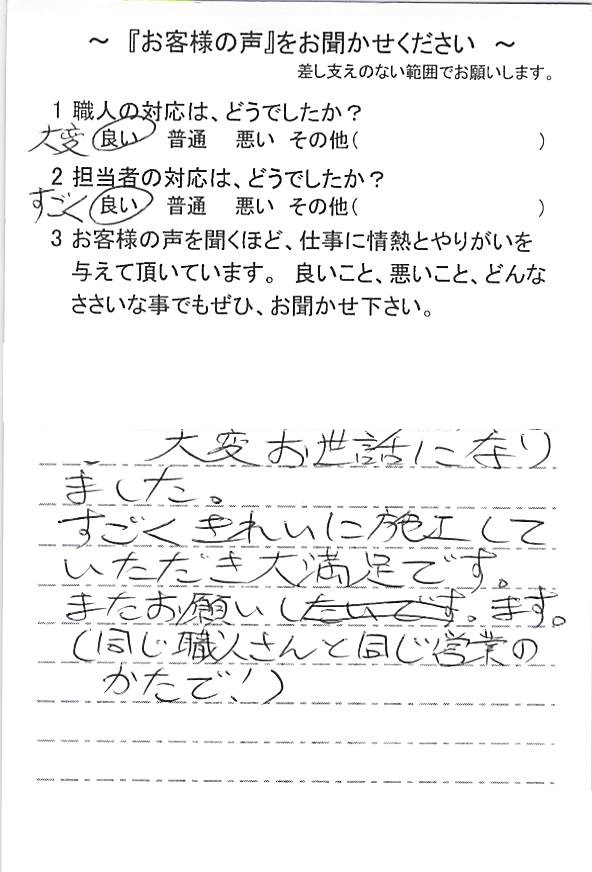 ～ 『お客様の声』をお聞かせください ～
差し支えのない範囲でお願いします。
1 職人の対応は、どうでしたか？
大変 良い 普通 悪い その他( )
2 担当者の対応は、どうでしたか？
すごく 良い 普通 悪い その他( )
3 お客様の声を聞くほど、仕事に情熱とやりがいを
与えて頂いています。 良いこと、悪いこと、どんな
ささいな事でもぜひ、お聞かせ下さい。
大変お世話になり
ました。
すごくきれいに施工して
いただき大満足です。
またお願いしたいです。ます。
(同じ職人さんと同じ営業の
かたで!)